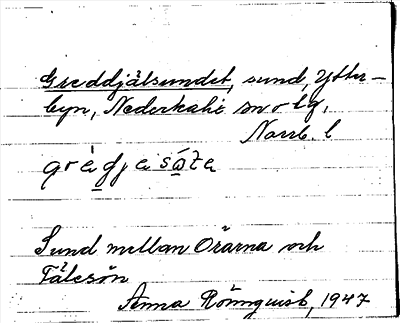 Greddjälsundet, sund, Ytter-
byn, Nederkalix sn o tg,
Norrb. l
Sund mellan Örarna och
Tälcsön
Anna Rönnquist, 1947